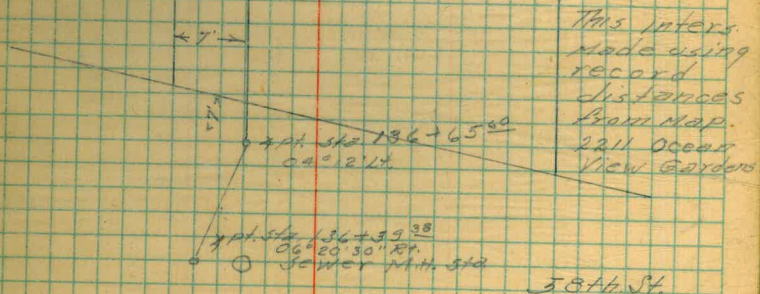 7'
This inters.
Made using
record
distances
from Map.
2211 Ocean
View Gardens
7'
∡pt. sta 136+65⁶⁰
04°12' Lt.
∡pt. sta 136+39³⁸
06°20'30" Rt.
Sewer M.H. Std.
58th St.